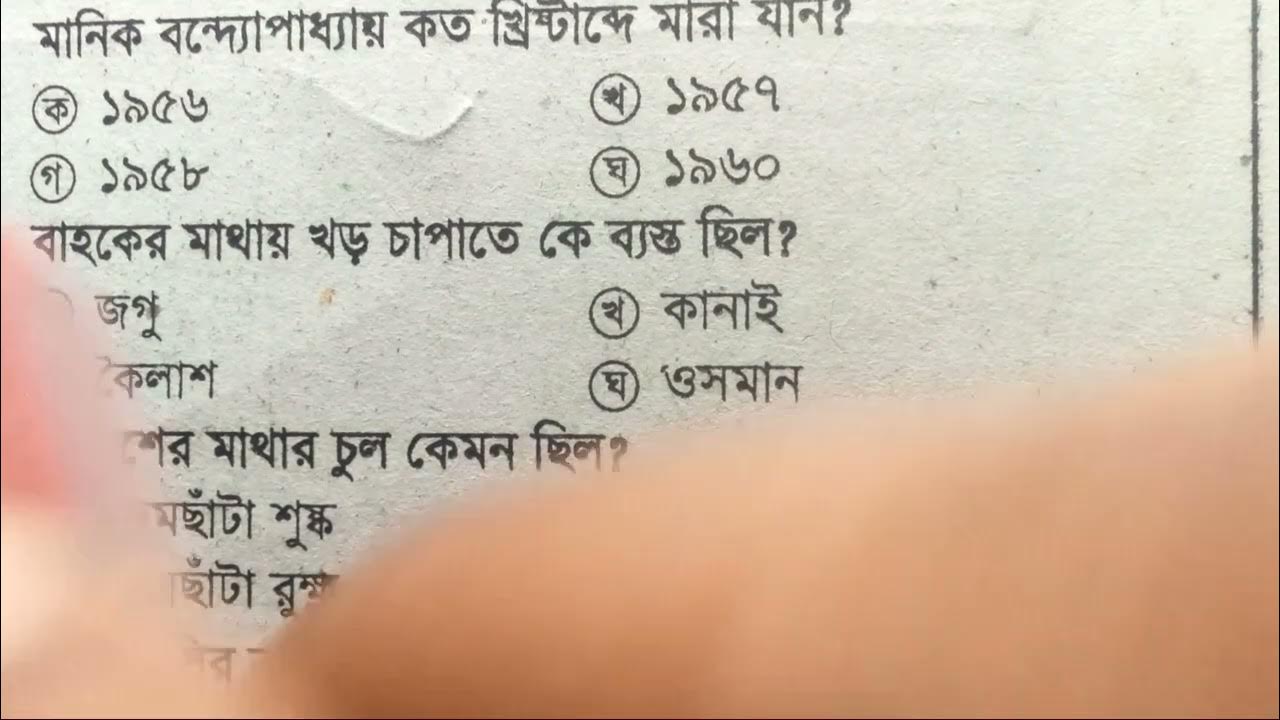 মানিক বন্দ্যোপাধ্যায় কত খ্রিষ্টাব্দে মারা যান?
ক ১৯৫৬ খ ১৯৫৭
গ ১৯৫৮ ঘ ১৯৬০
বাহকের মাথায় খড় চাপাতে কে ব্যস্ত ছিল?
জগু খ কানাই
কৈলাশ ঘ ওসমান
মাথার চুল কেমন ছিল?
শুষ্ক